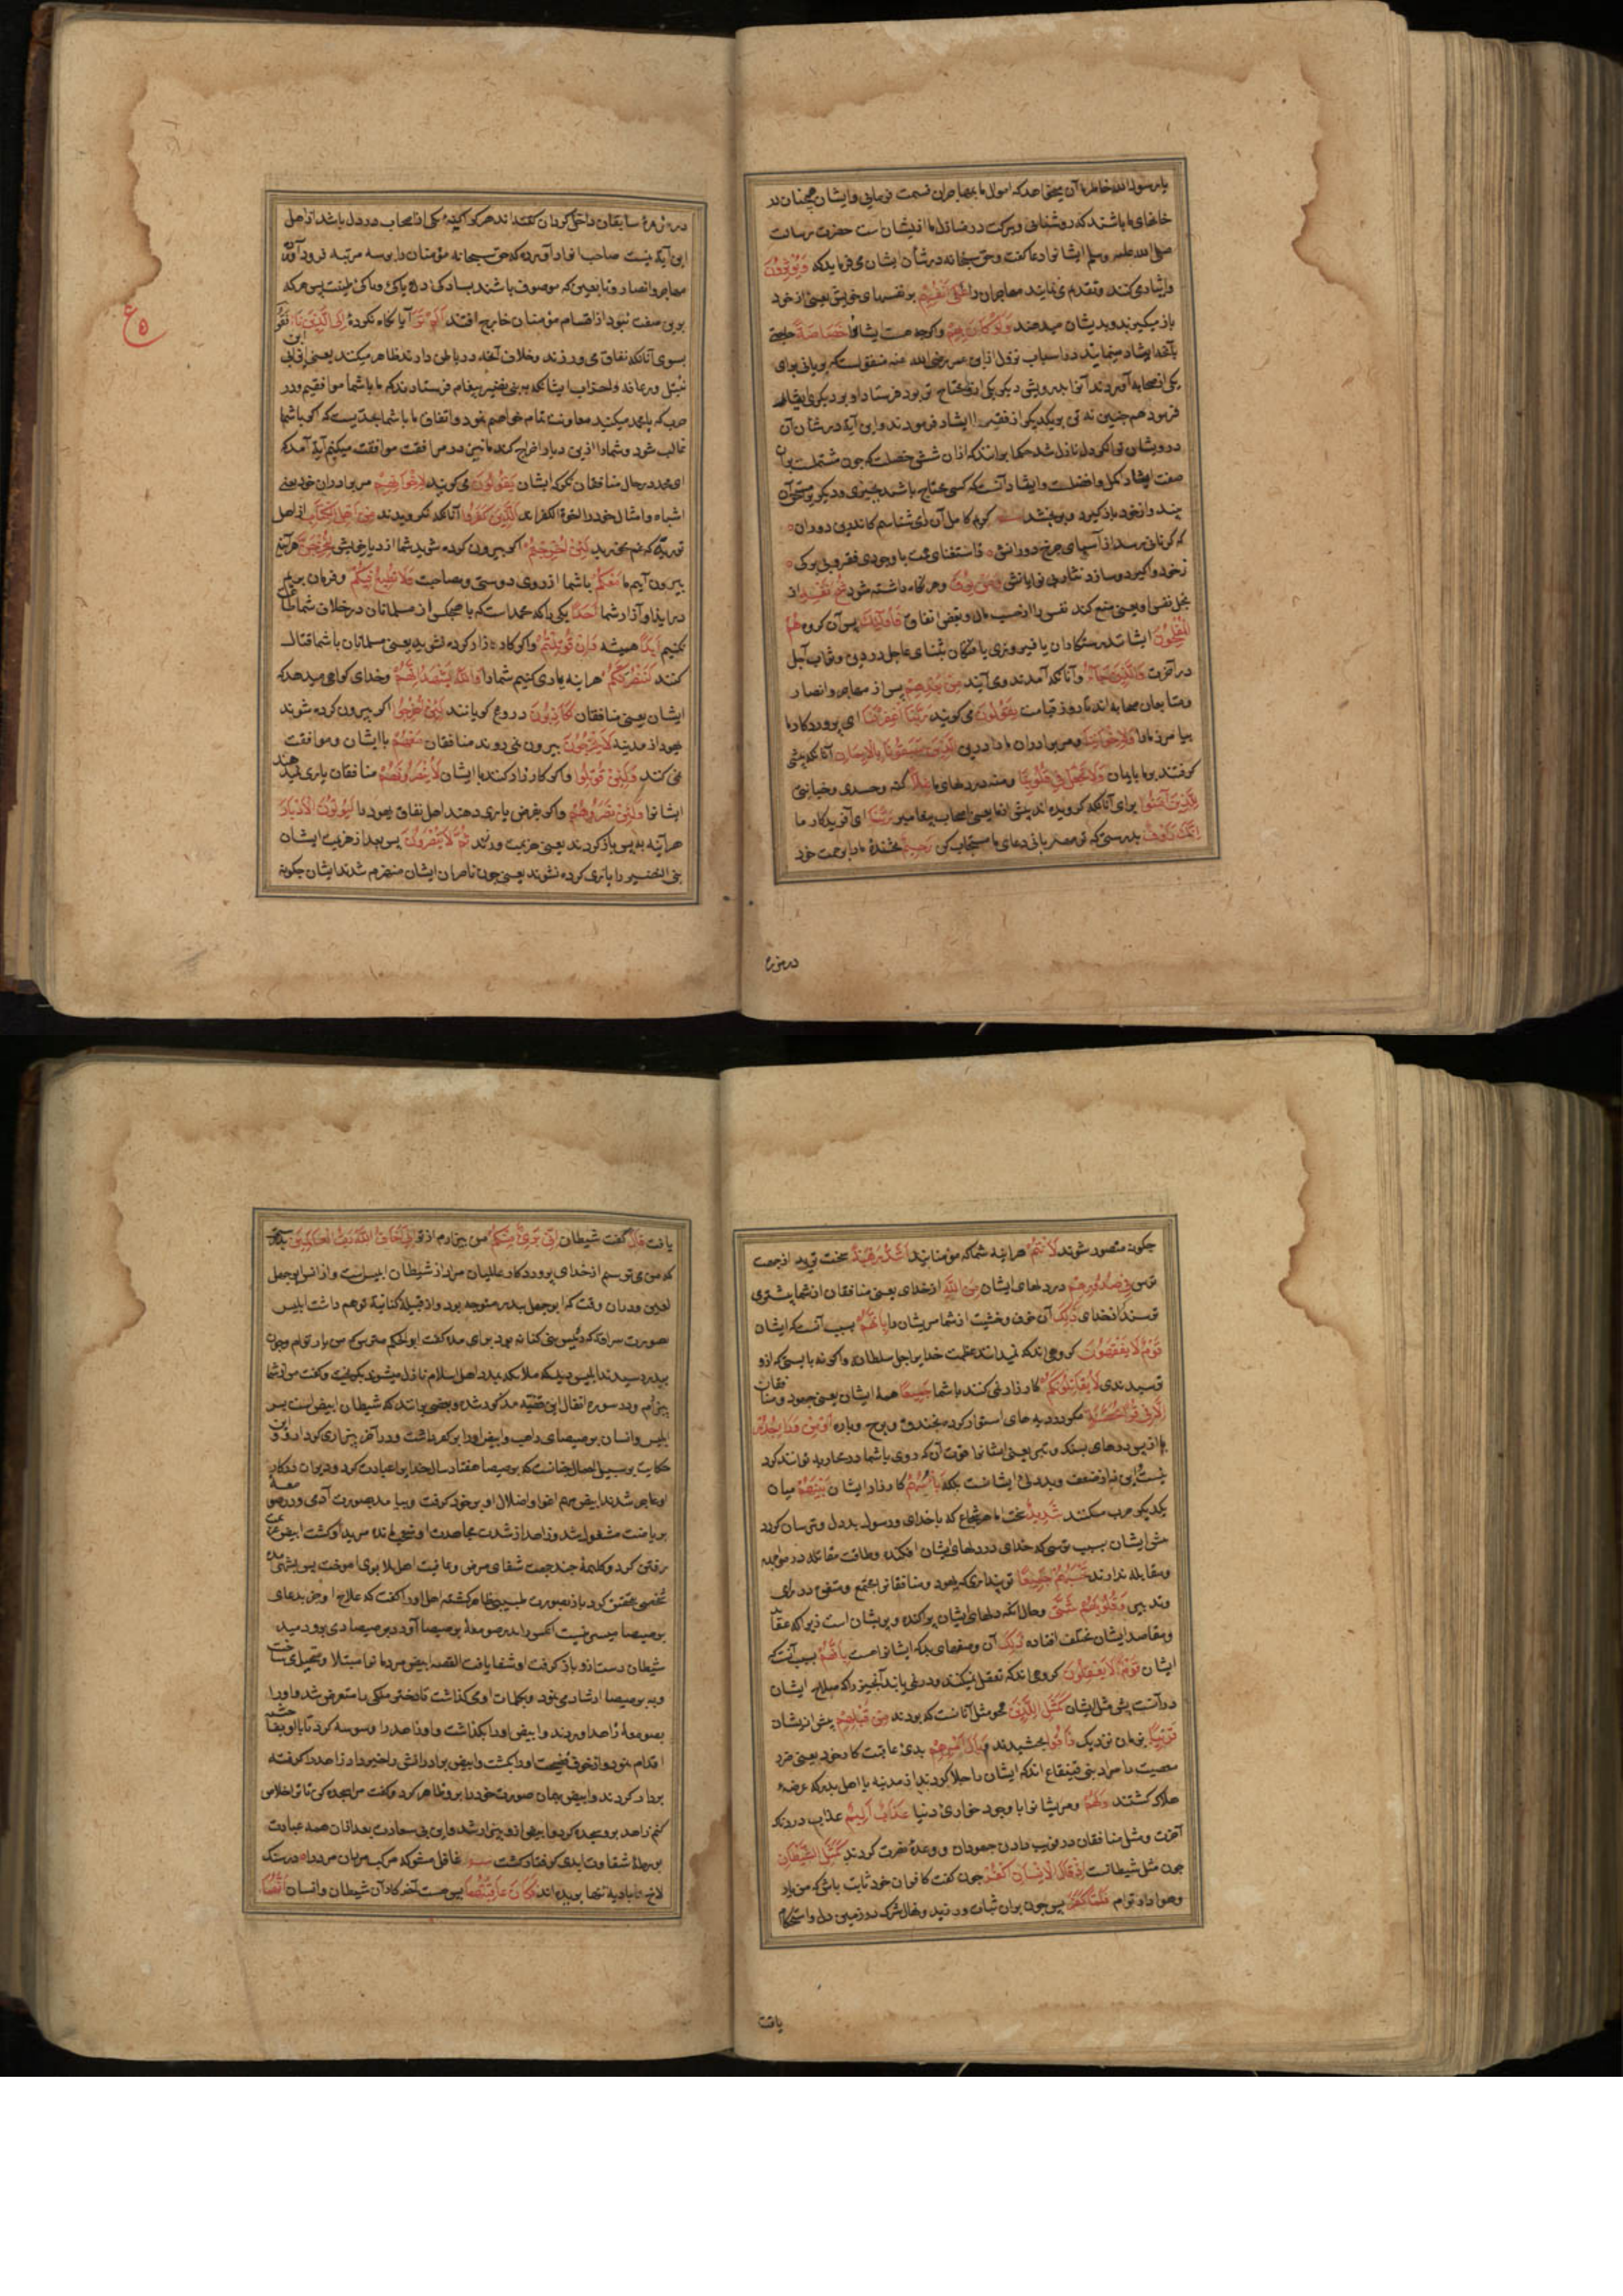 یا رسول الله خاطر ما آن میخواهد که اموال ما بمهاجران قسمت فرمایی و ایشان همچنان در
خانهای ما باشند که روشنایی و برکت در منازل ما از ایشان است حضرت رسالت
صلی الله علیه وسلم ایشانرا دعا گفت و حق سبحانه در شأن ایشان می فرماید که وَيُؤْثِرُونَ
و ایثار می کنند و تقدم می نمایند مهاجران را عَلَى أَنْفُسِهِمْ بر نفسهای خویش یعنی از خود
باز میگیرند و بدیشان میدهند وَلَوْ كَانَ بِهِمْ و اگرچه هست ایشانرا خَصَاصَةٌ حاجتی
بآنچه ایثار مینمایند در اسباب نزول از ابن عمر رضی الله عنه منقولست که بریانی برای
یکی از صحابه آوردند آنرا بدرویشی دیگر که ازو محتاج تر بود فرستاد او بدیگری ایثار
فرمود همچنین نه تن بیکدیگر از فقیر ایثار فرمودند و این آیه در شأن آن
درویشان توانگر دل نازل شد حکما برانند که از آن شش خصلت که جود مشتملست بران
صفت ایثار اکمل و افضلست و ایثار آنست که کسی محتاج باشد بچیزی و دیگری مستحق آن
بیند و از خود باز گیرد و بوی بخشد کریم کامل آن را می شناسم کاندرین دوران
که گر نانی رسد از آسیای چرخ دورانش ز استغنای همت با وجود فقر و بی برگی
ز خود واگیرد و سازد نثار بی نوایانش وَمَنْ يُوقَ و هر که نگاه داشته شود شُحَّ نَفْسِهِ از
بخل نفس او یعنی منع کند نفس را از حب مال و بغض انفاق فَأُولَئِكَ پس آن گروه هُمُ
الْمُفْلِحُونَ ایشانند رستگاران یا فیروزی یافتگان بثنای عاجل در دنیا و ثواب آجل
در آخرت وَالَّذِينَ جَاءُوا و آنانکه آمدند و می آیند مِنْ بَعْدِهِمْ پس از مهاجر و انصار
و متابعان صحابه اند تا روز قیامت يَقُولُونَ می گویند رَبَّنَا اغْفِرْ لَنَا ای پروردگار ما
بیامرز ما را وَلِإِخْوَانِنَا و مر برادران ما را در دین الَّذِينَ سَبَقُونَا بِالْإِيمَانِ آنانکه پیشی
گرفتند بر ما بایمان وَلَا تَجْعَلْ فِي قُلُوبِنَا و منه در دلهای ما غِلًّا کینه و حسدی و خیانتی
لِلَّذِينَ آمَنُوا برای آنانکه گرویده اند پیش از ما یعنی اصحاب پیغامبر رَبَّنَا ای آفریدگار ما
إِنَّكَ رَءُوفٌ بدرستی که تو مهربانی دعای ما مستجاب کن رَحِيمٌ بخشندهٔ ما را برحمت خود
در زمرهٔ
در زمرهٔ سابقان داخل گردان گفته اند هر کرا کینهٔ یکی از اصحاب در دل باشد از اهل
این آیه نیست صاحب انوار آورده که حق سبحانه مؤمنان را بر سه مرتبه فرود آورد
مهاجر و انصار و تابعین که موصوف باشند بسادگی دل و پاکی طینت پس هر که
برین صفت نبود از اقسام مؤمنان خارج افتد أَلَمْ تَرَ آیا نگاه نکردهٔ إِلَى الَّذِينَ نَافَقُوا
بسوی آنانکه نفاق می ورزند و خلاف آنچه در باطن دارند ظاهر میکنند یعنی ابن ابی
نبتل و رفاعه و احزاب ایشانکه به بنی نضیر پیغام فرستادند که ما با شما موافقیم و در
حرب که با محمد میکنید معاونت تمام خواهیم نمود و اتفاق ما با شما بحدیست که اگر با شما
غالب شود و شما را ازین دیار اخراج کند ما نیز در مرافقت موافقت میکنیم آیه آمد که
ای محمد در حال منافقان نگر که ایشان يَقُولُونَ می گویند لِإِخْوَانِهِمُ مر برادران خود یعنی
اشباه و امثال خود را الَّذِينَ كَفَرُوا آنانکه نگرویدند مِنْ أَهْلِ الْكِتَابِ از اهل
توریة که غم مخورید لَئِنْ أُخْرِجْتُمْ اگر بیرون کرده شوید شما از دیار خویش لَنَخْرُجَنَّ هر آینه
بیرون آییم ما مَعَكُمْ با شما از روی دوستی و مصاحبت وَلَا نُطِيعُ فِيكُمْ و فرمان نبریم
در ایذا و آزار شما أَحَدًا یکی را که محمداست که با هیچکس از مسلمانان در خلاف شما
نکنیم أَبَدًا همیشه وَإِنْ قُوتِلْتُمْ و اگر کارزار کرده شوید یعنی مسلمانان با شما قتال
کنند لَنَنْصُرَنَّكُمْ هر اینه یاری کنیم شما را وَاللَّهُ يَشْهَدُ إِنَّهُمْ و خدای گواهی میدهد که
ایشان یعنی منافقان لَكَاذِبُونَ دروغ گویانند لَئِنْ أُخْرِجُوا اگر بیرون کرده شوند
جهود از مدینه لَا يَخْرُجُونَ بیرون نمی روند منافقان مَعَهُمْ با ایشان و موافقت
نمی کنند وَلَئِنْ قُوتِلُوا و اگر کارزار کنند با ایشان لَا يَنْصُرُونَهُمْ منافقان یاری ندهند
ایشانرا وَلَئِنْ نَصَرُوهُمْ و اگر بفرض یاری دهند اهل نفاق یهود را لَيُوَلُّنَّ الْأَدْبَارَ
هر آینه به پس باز گردند یعنی هزیمت ورزند ثُمَّ لَا يُنْصَرُونَ پس بعد از هزیمت ایشان
بنی النضیر را یاری کرده نشوند یعنی چون ناصران ایشان منهزم شدند ایشان چگونه
چگونه منصور شوند لَأَنْتُمْ هر اینه شما که مؤمنانید أَشَدُّ رَهْبَةً سخت ترید از جهت
ترس فِي صُدُورِهِمْ در دلهای ایشان مِنَ اللَّهِ از خدای یعنی منافقان از شما بیشتر می
ترسند از خدای ذَلِكَ آن خوف و خشیت از شما مر ایشان را بِأَنَّهُمْ بسبب آنست که ایشان
قَوْمٌ لَا يَفْقَهُونَ گروهی اند که نمیدانند عظمت خدایرا جل سلطانه و اگر نه بایستی که ازو
ترسیدندی لَا يُقَاتِلُونَكُمْ کارزار نمی کنند با شما جَمِيعًا همهٔ ایشان یعنی جهود و منافقان
إِلَّا فِي قُرًى مُحَصَّنَةٍ مگر در دیه های استوار کرده بخندق و برج و باره أَوْ مِنْ وَرَاءِ جُدُرٍ
یا از پس دیوارهای بسنگ و تیر یعنی ایشانرا قوت آن که روی با شما در محاربه توانند کرد
نیست این نه از ضعف و بددلی ایشانست بلکه بَأْسُهُمْ کارزار ایشان بَيْنَهُمْ میان
یکدیگر حرب میکنند شَدِيدٌ سخت است اما هر شجاع که با خدای و رسول بددل و ترسان گردد
پس ایشان بسبب ترسی که خدای در دلهای ایشان افکنده و طاقت مقاتله در مواجه
و مقابله ندارند تَحْسَبُهُمْ جَمِيعًا تو پنداری که یهود و منافقانرا مجتمع و متفق در رای
و تدبیر وَقُلُوبُهُمْ شَتَّى و حال آنکه دلهای ایشان پراکنده و پریشان است زیرا که عقاید
و مقاصد ایشان مختلف افتاده ذَلِكَ آن وصفهای بد که ایشانراست بِأَنَّهُمْ بسبب آنست که
ایشان قَوْمٌ لَا يَعْقِلُونَ گروهی اند که تعقل نمیکنند و در نمی یابند آنچیز را که صلاح ایشان
در آنست پس مثل ایشان كَمَثَلِ الَّذِينَ همچو مثل آنانست که بودند مِنْ قَبْلِهِمْ پیش از ایشان
قَرِيبًا بزمان نزدیک ذَاقُوا بچشیدند وَبَالَ أَمْرِهِمْ بدی عاقبت کار خود یعنی ضرر
معصیت را مراد بنی قینقاع اند که ایشان را جلا کردند از مدینه یا اهل بدر که عرضه
هلاک گشتند وَلَهُمْ و مر ایشانرا با وجود خواری دنیا عَذَابٌ أَلِيمٌ عذابی دردناک
آخرت و مثل منافقان در فریب دادن جهودان و وعدهٔ نصرت کردند كَمَثَلِ الشَّيْطَانِ
چون مثل شیطانست إِذْ قَالَ لِلْإِنْسَانِ اكْفُرْ چون گفت کافران خود ثابت باش که من یار
و هوادار توام فَلَمَّا كَفَرَ پس چون بران ثبات ورزید و نهال شرک در زمین دل او استحکام
یافت
یافت قَالَ گفت شیطان إِنِّي بَرِيءٌ مِنْكَ من بیزارم از تو إِنِّي أَخَافُ اللَّهَ رَبَّ الْعَالَمِينَ بدرستی
که من می ترسم از خدای پروردگار عالمیان مراد از شیطان ابلیس است و از انسان ابوجهل
لعین و دران وقت که ابوجهل ببدر متوجه بود و از قبیلهٔ کنانه توهم داشت ابلیس
بصورت سراقه که رئیس بنی کنانه بود برای مدد گفت ابوالحکم مترس که من یار توام و چون
ببدر رسیدند ابلیس دید که ملائکه بمدد اهل اسلام نازل میشوند بگریخت و گفت من از شما
بیزارم و در سورهٔ انفال این قضیه مذکور شد و بعضی برانند که شیطان ابیض است پسر
ابلیس و انسان برصیصای راهب و ابیض او را بر کفر داشت و در آخر بیزاری کرد ازو و این
حکایت بر سبیل اجمال چنانست که برصیصا هفتاد سال خدایرا عبادت کرد و دیوان در کار
او عاجز شدند ابیض مهم اغوا و اضلال او بر خود گرفت و بیامد بصورت آدمی و در صومعه
بریاضت مشغول شد و زاهد از شدت مجاهدت او متحیر مانده مرید او گشت ابیض
رفتن کرد و کلیمهٔ چند جهت شفای مرض و عافیت اهل بلا بوی آموخت پس
شخصی مختنق کرد باز بصورت طبیبی ظاهر گشته اهل او را گفت که علاج او جز بدعای
برصیصا میسر نیست آنکس را بدر صومعهٔ برصیصا آورد و برصیصا دمی برو دمید
شیطان دست ازو باز گرفت او شفا یافت القصه ابیض مردمانرا مبتلا و متخیل می ساخت
و به برصیصا ارشاد می نمود و بکلمات او می گذاشت تا دختر ملکی را متعرض شد و او را
بصومعهٔ زاهد آوردند و ابیض او را بگذاشت و او زاهد را وسوسه کرد تا با او بفاحشه
اقدام نمود و از خوف فضیحت او را بکشت و ابیض برادرانش را خبر داد زاهد را گرفته
بردار کردند و ابیض بهمان صورت خود را برو ظاهر کرد و گفت مرا سجده کن تا ترا خلاص
کنم زاهد برو سجده کرد و ابیض ازو بیزار شد و این بی سعادت بعد از آن همه عبادت
بورطهٔ شقاوت ابدی گرفتار گشت غافل مشو که مرکب مردان مرد را در سنگ
لاخ بادیه پیها بریده اند فَكَانَ عَاقِبَتَهُمَا پس هست آخر کار آن شیطان و انسان أَنَّهُمَا